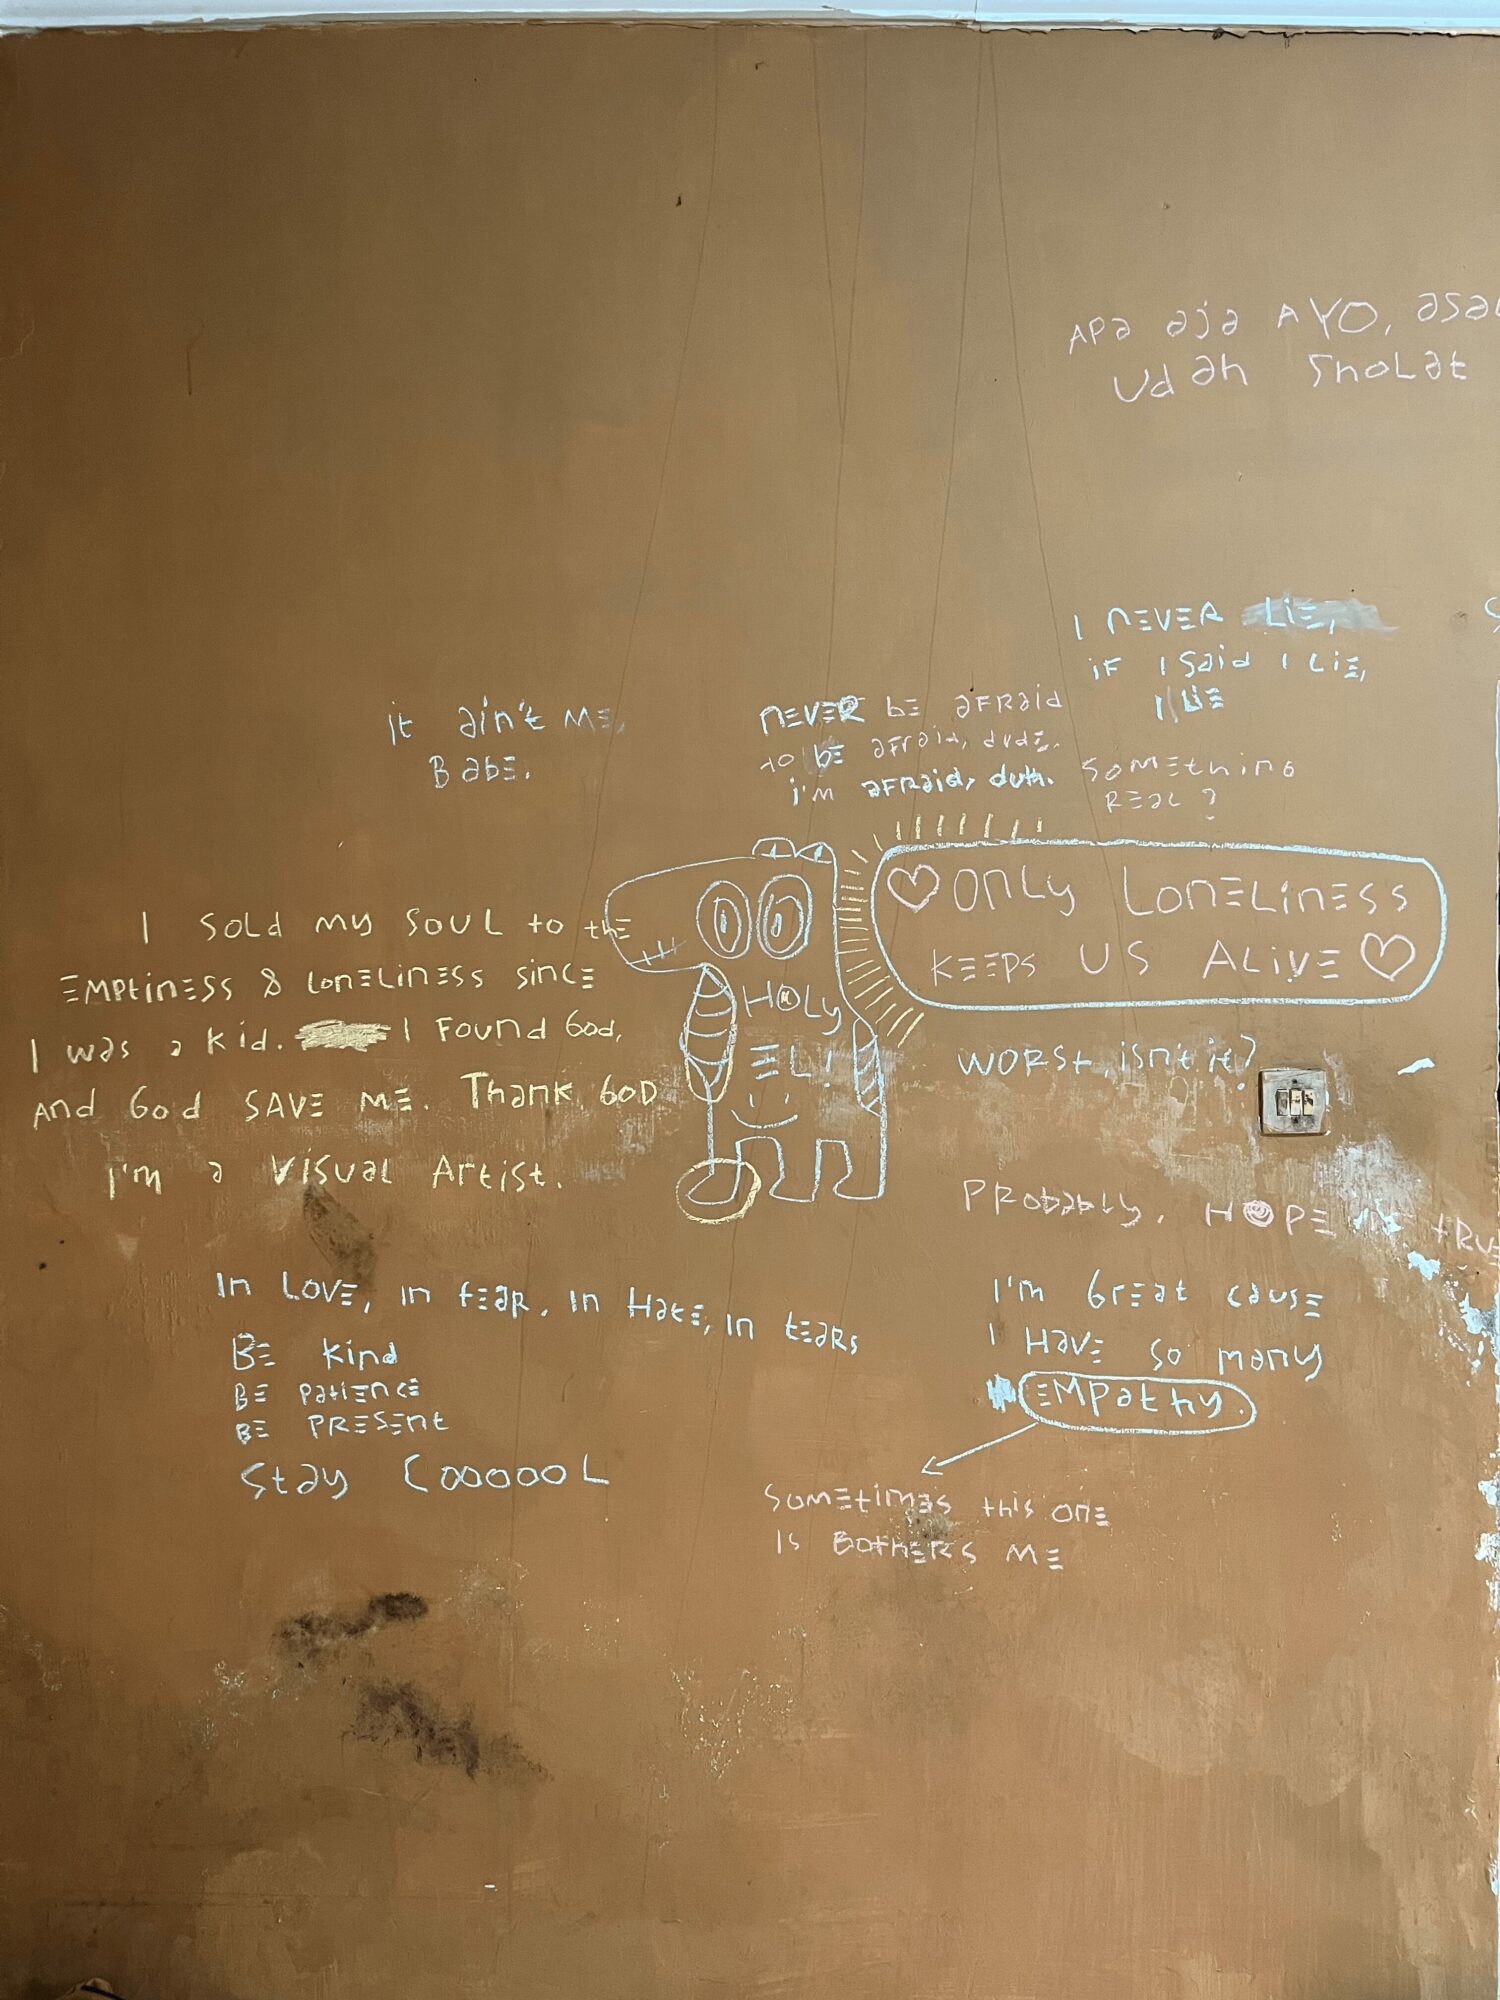 Apa aja AYO,
Udah SHOLAT
I NEVER LiE,
iF I Said I LiE,
I LiE
it ain't ME,
BabE.
NEVER bE aFRaid
to bE afraid, dudE.
i'm aFRaid, duh.
SOMEthinG
REaL?
I SoLd my SOUL to thE
EMPtinESS & LonELinESS sincE
I was a kid. I Found God,
And God SAVE ME. Thank GOD
I'm a Visual Artist.
HOLy
EL!
ONLy LONELiNESS
KEEPS US ALiVE
WORSt, isn't it?
PRobabLy, HOPE
In LOVE, in fEaR, in HatE, in tEaRs
BE kind
BE patiEncE
BE PRESEnt
Stay COOOOOL
I'm GrEat causE
I HavE so many
EMPathy.
SOMEtimEs this onE
is BothERS ME